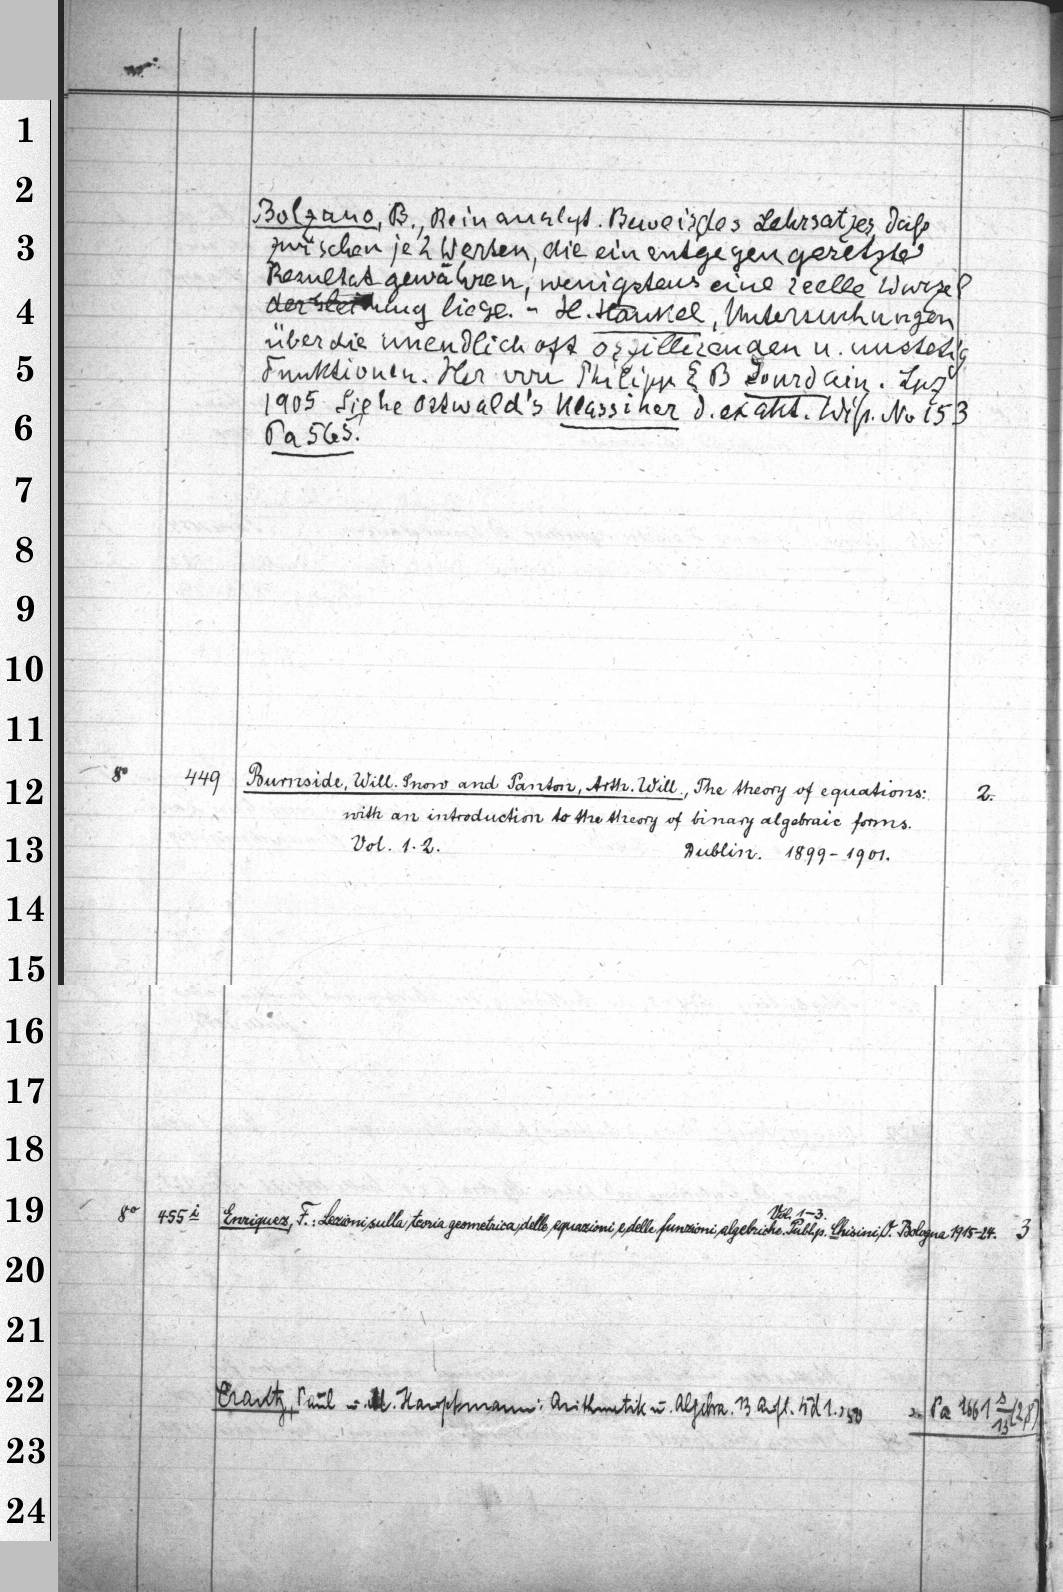 1
2
Bolzano, B., Rein analyt. Beweis des Lehrsatzes, daß
3
zwischen je 2 Werten, die ein entgegen gesetztes
Resultat gewähren, wenigstens eine reelle Wurzel
4
der Gleichung liege. - H. Hankel, Untersuchungen
über die unendlich oft oszillierenden u. unstetig
5
Funktionen. Her von Philipp E B Jourdain. Lpz
1905 Siehe Ostwald's Klassiker d. exakt. Wiss. No 153
6
Pa 565.
7
8
9
10
11
8° 449 Burnside, Will. Snow and Panton, Arth. Will., The theory of equations: 2.
12
with an introduction to the theory of binary algebraic forms.
13
Vol. 1. 2. Dublin. 1899-1901.
14
15
16
17
18
19
Vol. 1-3.
8° 455 i Enriques, F.: Lezioni sulla teoria geometrica delle equazioni e delle funzioni algebriche. Publ. p. Chisini, O. Bologna 1915-24. 3
20
21
22
Crantz, Paul u. M. Hauptmann: Arithmetik u. Algebra. 13 Aufl. Bd 1. Pa 1661 s/13 (2,8)
23
24